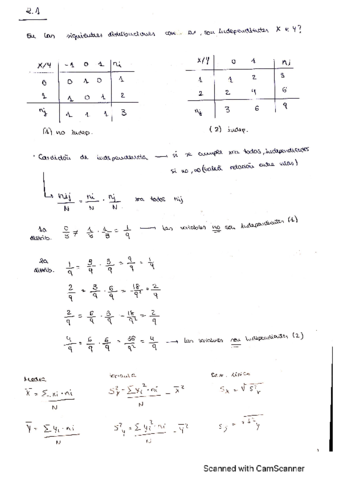 2.1
En las siguientes distribuciones son independientes X e Y?
X/Y -1 0 1 ni
0 0 1 0 1
1 1 0 1 2
nj 1 1 1 3
(1) no indep.
X/Y 0 1 ni
1 1 2 3
2 2 4 6
nj 3 6 9
(2) indep.
Condición de independencia → si se cumple para todas, independientes
si no,
nij/N = ni/N · nj/N para todos nij
1a distrib. 0/3 ≠ 1/3 · 1/3 = 1/9 → las variables no son independientes (1)
2a distrib. 1/9 = 3/9 · 3/9 = 9/9² = 1/9
2/9 = 3/9 · 6/9 = 18/9² = 2/9
2/9 = 6/9 · 3/9 = 18/9² = 2/9
4/9 = 6/9 · 6/9 = 36/9² = 4/9 → las variables son independientes (2)
Medias Varianza
x̄ = Σ xi · ni / N
ȳ = Σ yi · ni / N S²y = Σ yi² · ni / N - ȳ²
Scanned with CamScanner